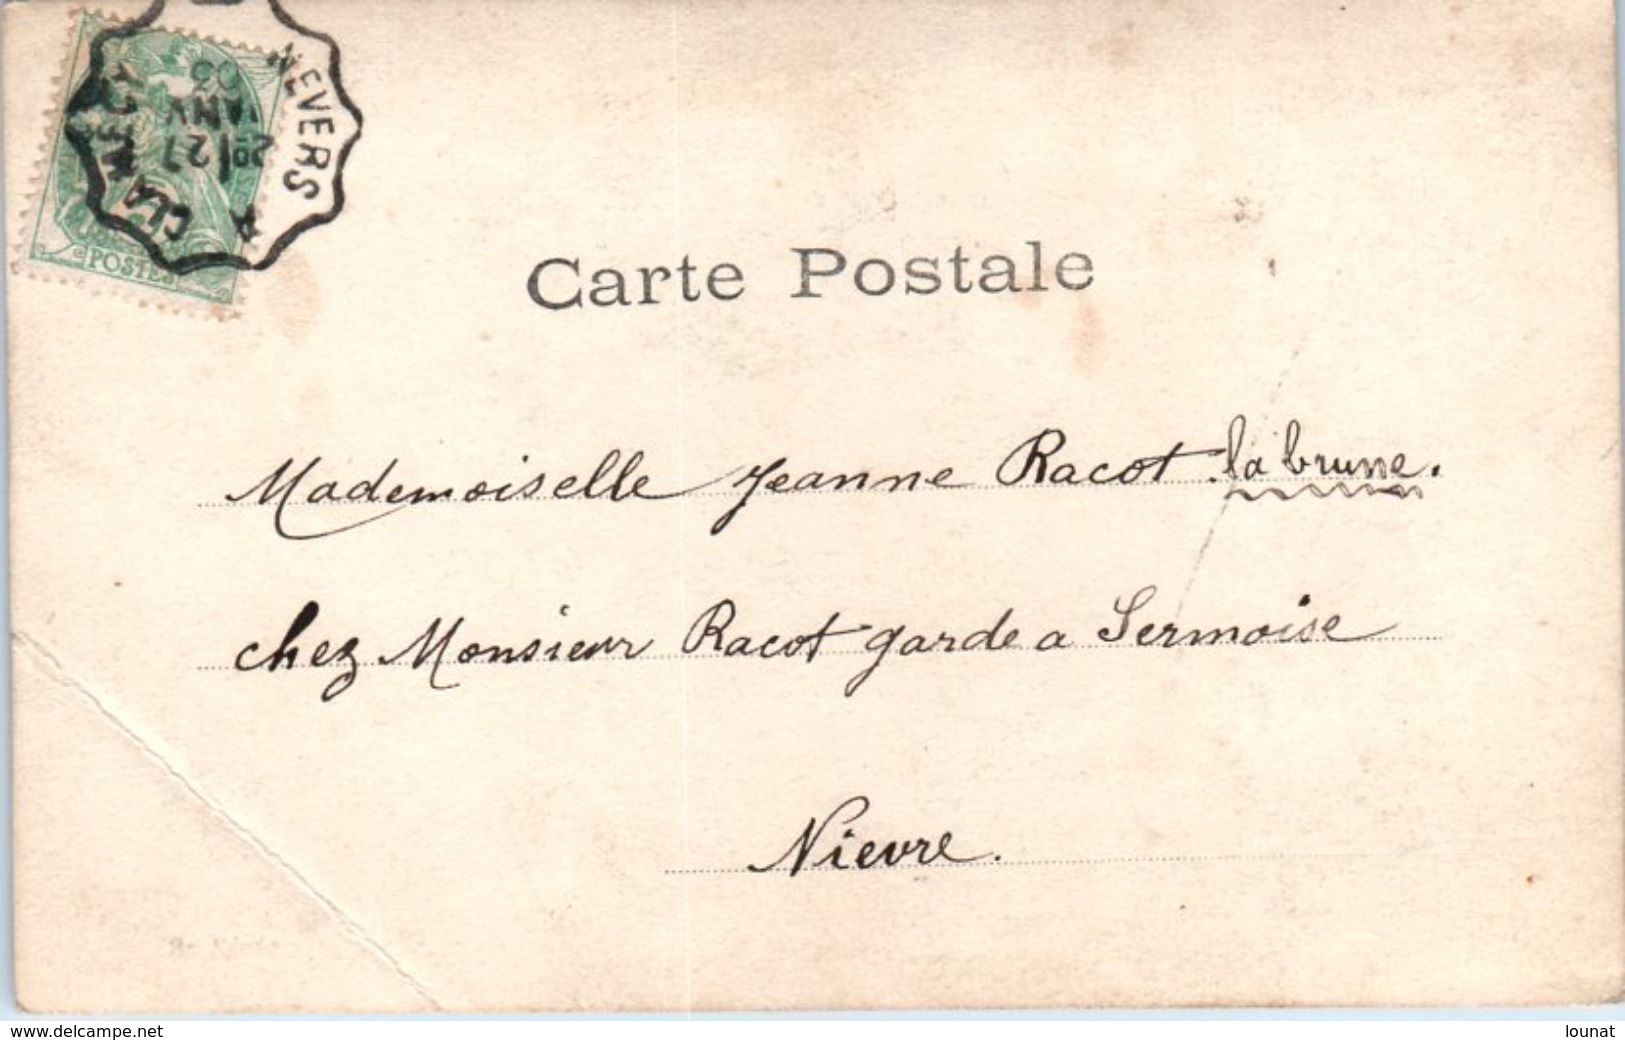 NEVERS
CLAMECY
2E 27
JANV
05
POSTES
Carte Postale
Mademoiselle Jeanne Racot la brune.
chez Monsieur Racot garde a Sermoise
Nievre.
www.delcampe.net
lounat